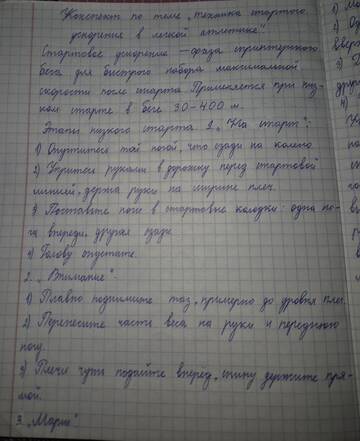 Конспект по теме „техника стартого
ускорения в легкой атлетике".
Стартовое ускорение — фаза спринтерского
бега для быстрого набора максимальной
скорости после старта. Применяется при низ-
ком старте в беге 30-400 м.
Этапы низкого старта 1. „На старт":
1) Опуститесь той ногой, что сзади на колено
2) Упритесь руками в дорожку перед стартовой
линией, держа руки на ширине плеч.
3. Поставьте ноги в стартовые колодки: одна но-
га впереди, другая сзади
4) Голову опустите.
2. „Внимание".
1) Плавно поднимите таз, примерно до уровня плеч.
2) Перенесите часть веса на руки и переднюю
ногу.
3) Плечи чуть подайте вперед, спину держите пря-
мой.
3. „Марш"